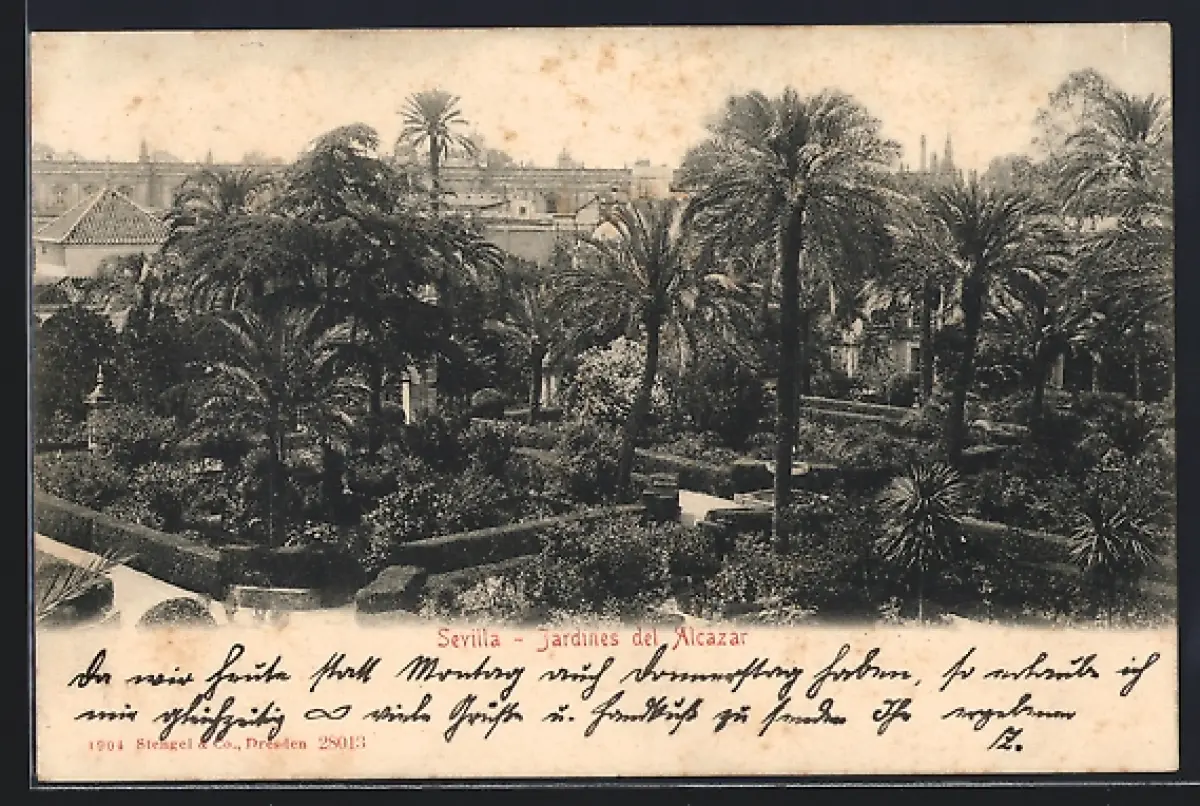 Sevilla - Jardines del Alcazar
Da wir heute statt Montag auch Donnerstag haben, so erlaube ich
mir gleichzeitig ∞ viele Grüße u. Handkuß zu senden Ihr ergebener
Z.
1904 Stengel & Co., Dresden 28013